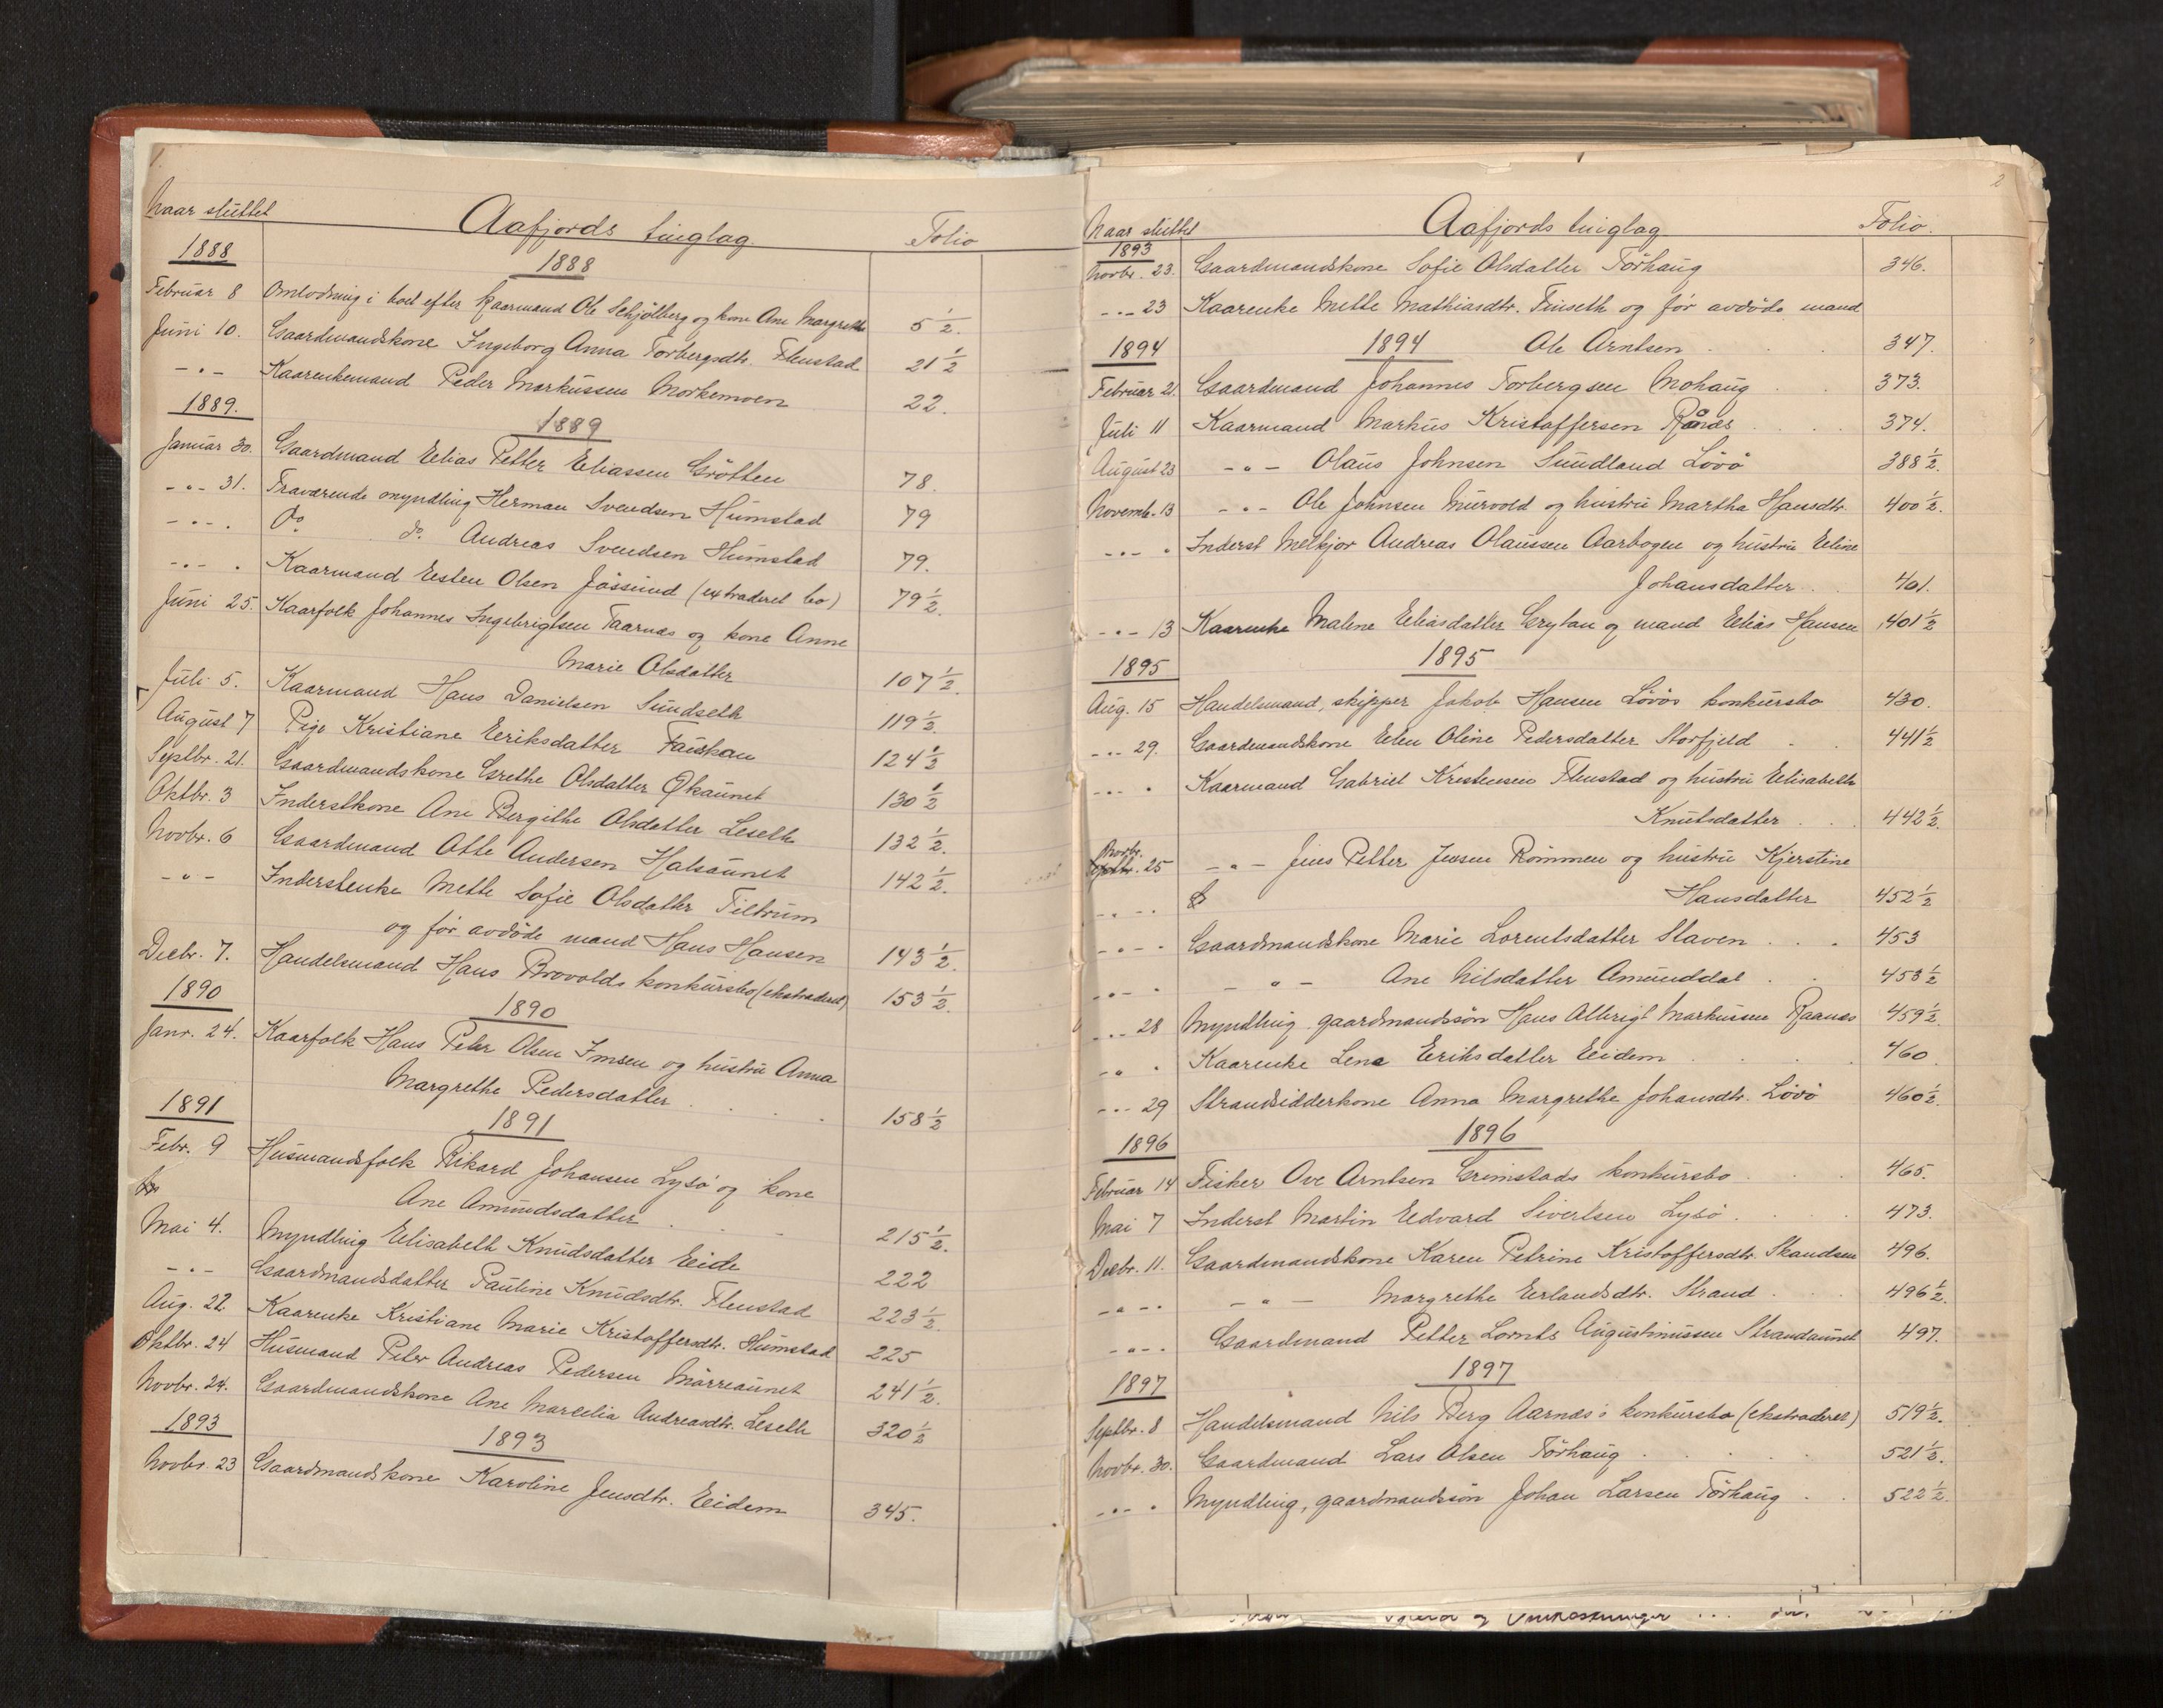 1.
Naar sluttet Aafjords tinglag. Folio
1888 1888
Februar 8 Omlodning i boet efter kaarmand Ole Schjölberg og kone Ane Margrethe 5 1/2.
Juni 10. Gaardmandskone Ingeborg Anna Torbergsdtr. Flenstad 21 1/2
-"- Kaarenkemand Peder Markussen Morkemoen 22.
1889. 1889
Januar 30. Gaardmand Elias Petter Eliassen Grötten 78.
-"- 31. Fraværende myndling Herman Svendsen Humstad 79
-"-. Do. do. Andreas Svendsen Humstad 79.
-"-. Kaarmand Esten Olsen Jössund (extraderet bo) 79 1/2.
Juni 25. Kaarfolk Johannes Ingebrigtsen Taarnæs og kone Anne
Marie Olsdatter 107 1/2.
Juli 5. Kaarmand Hans Danielsen Sundseth 119 1/2.
August 7 Pige Kristiane Eriksdatter Fauskan 124 1/2
Septbr. 21. Gaardmandskone Grethe Olsdatter Økaunet 130 1/2
Oktbr. 3 Inderstkone Ane Bergithe Olsdatter Leseth 132 1/2.
Novbr. 6 Gaardmand Otte Andersen Halsaunet 142 1/2.
-"- Inderstenke Mette Sofie Olsdatter Tiltrum
og før avdöde mand Hans Hansen 143 1/2.
Decbr. 7. Handelsmand Hans Brovolds konkursbo (ekstraderet) 153 1/2.
1890 1890
Janr. 24. Kaarfolk Hans Peter Olsen Imsen og hustru Anna
Margrethe Pedersdatter 158 1/2
1891 1891
Febr. 9 Husmandsfolk Rikard Johansen Lysö og kone
Ane Amundsdatter 215 1/2.
Mai 4. Myndling Elisabeth Knudsdatter Eide 222
-"- Gaardmandsdatter Pauline Knudsdtr. Flenstad 223 1/2.
Aug. 22 Kaarenke Kristiane Marie Kristoffersdtr. Humstad 225
Oktbr. 24 Husmand Peter Andreas Pedersen Mörreaunet 241 1/2.
Novbr. 24. Gaardmandskone Ane Marcelia Andreasdtr. Leseth 320 1/2
1893 1893
Novbr. 23 Gaardmandskone Karoline Jensdtr. Eidem 345.
2
Naar sluttet Aafjords tinglag Folio.
1893
Novbr. 23. Gaardmandskone Sofie Olsdatter Törhaug 346.
-"- 23 Kaarenke Mette Mathiasdtr. Finseth og før avdöde mand
1894 1894 Ole Arntsen 347.
Februar 21. Gaardmand Johannes Torbergsen Mohaug 373.
Juli 11 Kaarmand Markus Kristoffersen Rånæs 374.
August 23 -"- Olaus Johnsen Sundland Lövö 388 1/2.
Novemb. 13 -"- Ole Johnsen Murvold og hustru Martha Hansdtr. 400 1/2.
-"- . Inderst Melkjor Andreas Olaussen Aarbogen og hustru Eline
Johansdatter 401.
-"- 13 Kaarenke Malene Eliasdatter Grytan og mand Elias Hansen 401 1/2
1895 1895
Aug. 15 Handelsmand, skipper Jakob Hansen Lövös konkursbo 430.
-"- 29. Gaardmandskone Elen Oline Pedersdatter Storfjeld 441 1/2
-"- . Kaarmand Gabriel Kristensen Flenstad og hustru Elisabeth
Knutsdatter 442 1/2.
Novbr.
Septbr. 25 -"- Jens Petter Jensen Römmen og hustru Kjerstine
-"-. Hansdatter 452 1/2
-"-. Gaardmandskone Marie Lorentsdatter Staven 453
-"-. -"- Ane Nilsdatter Amunddal 453 1/2
-"- 28 Myndling gaardmandssön Hans Albrigt Markussen Raanæs 459 1/2.
-"- . Kaarenke Lena Eriksdatter Eidem 460.
-"- 29 Strandsidderkone Anna Margrethe Johansdtr. Lövö 460 1/2.
1896 1896
Februar 14 Fisker Ove Arntsen Grimstads konkursbo 465.
Mai 7 Inderst Martin Edvard Sivertsen Lysö 473.
Decbr. 11. Gaardmandskone Karen Petrine Kristoffersdtr. Skandsen 496.
-"-. -"- Margrethe Erlandsdtr. Strand 496 1/2.
-"-. Gaardmand Petter Lornts Augustinussen Strandaunet 497.
1897 1897
Septbr. 8 Handelsmand Nils Berg Aarnæs's konkursbo (ekstraderet) 519 1/2.
Novbr. 30. Gaardmand Lars Olsen Törhaug 521 1/2.
-"- . Myndling, gaardmandssön Johan Larsen Törhaug 522 1/2.